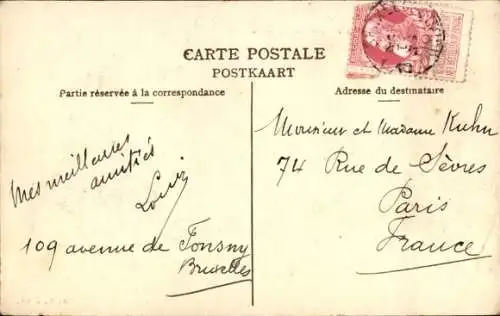 CARTE POSTALE
POSTKAART
Partie réservée à la correspondance
Adresse du destinataire
Mes meilleures
amitiés
Louis
109 avenue de Fonsny
Bruxelles
Monsieur et Madame Kuhn
74 Rue de Sèvres
Paris
France